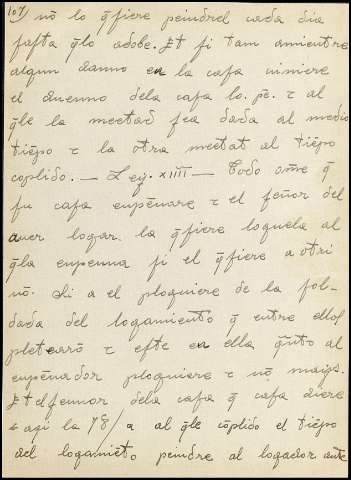 107) nō lo q̄fiere peindrel cada dia
fafta q̄lo adobe. Et fi tam amientre
algun danno en la cafa viniere
el duenno dela cafa lo. pē. τ al
q̄le la meetad fea dada al medio
tiēpo τ la otra meetat al tiēpo
cōplido. — Ley. xIIII — Todo om̄e q̄
fu cafa enpēnare τ el feñor del
auer logar. la q̄fiere loquela al
q̄la enpenna fi el q̄fiere a otri
nō. Si a el ploguiere de la fol-
dada del logamiento q̄ entre ellof
pletearō τ efte en ella q̄nto al
enpēnador ploguiere τ nō mays.
Et el fennor dela cafa q̄ cafa diere
aqi la 78/ a al q̄le cōplido el tiēpo
del logamiēto peindre al logador ante